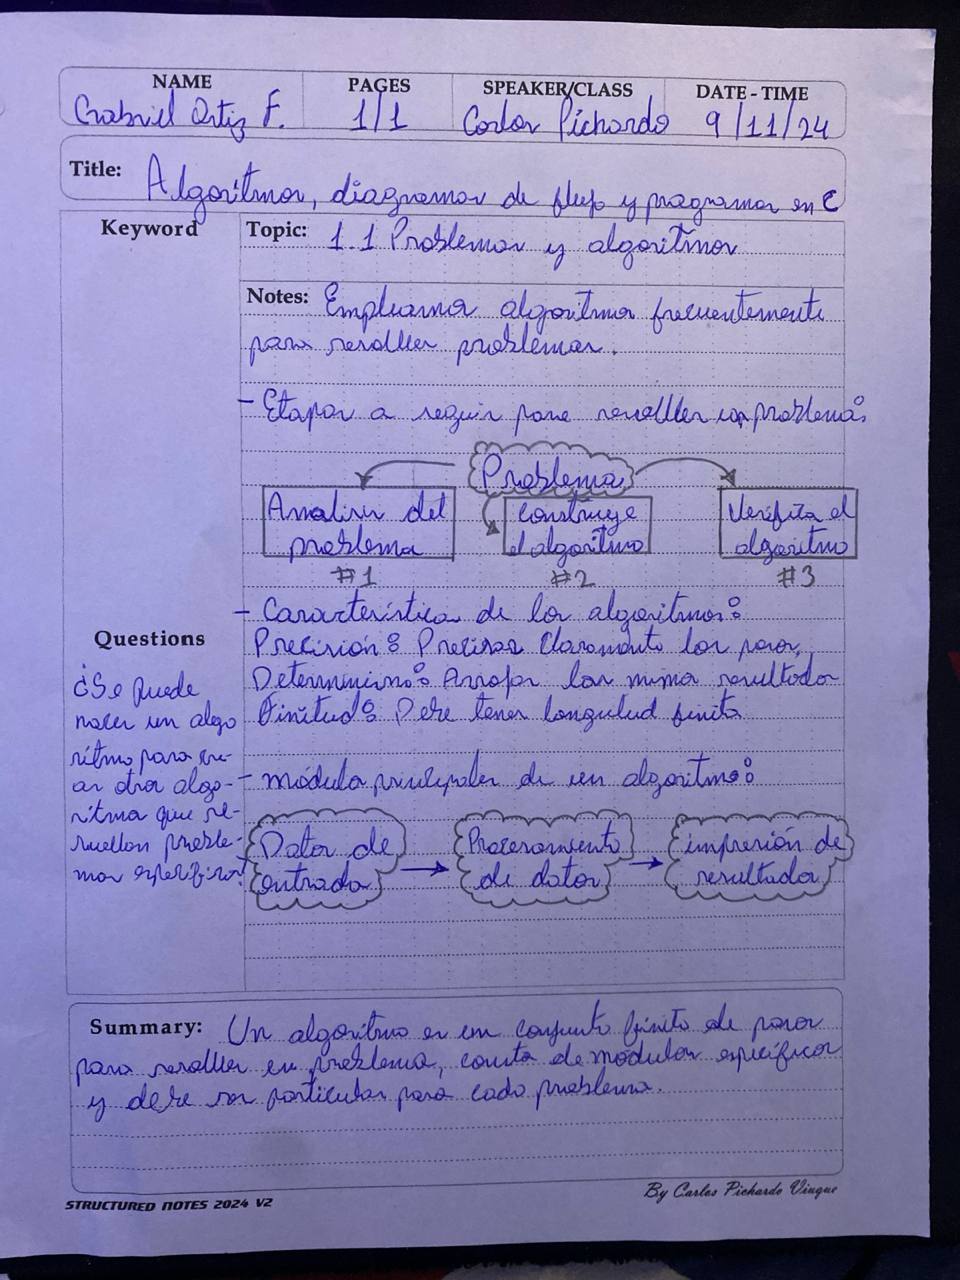 NAME PAGES SPEAKER/CLASS DATE - TIME
Gabriel Ortiz F. 1/1 Carlos Pichardo 9/11/24
Title: Algoritmos, diagramas de flujo y programas en C
Keyword
Topic: 1.1 Problemas y algoritmos
Notes: Empleamos algoritmos frecuentemente
para resolver problemas.
- Etapas a seguir para resolver un problema:
Problema
Analisis del
problema
#1
construye
el algoritmo
#2
Verifica el
algoritmo
#3
- Característica de los algoritmos:
Precisión: Precisar claramente los pasos,
Determinismo: Arrojar los mismo resultados
Finitud: Debe tener longitud finita
- módulo principales de un algoritmo:
Datos de
entrada
Procesamiento
de datos
impresión de
resultados
Questions
¿Se puede
hacer un algo
ritmo para cre-
ar otro algo-
ritmo que re-
suelva proble-
mas específicos?
Summary: Un algoritmo es un conjunto finito de pasos
para resolver un problema, consta de módulos específicos
y debe ser particular para cada problema.
STRUCTURED NOTES 2024 V2
By Carlos Pichardo Viuque